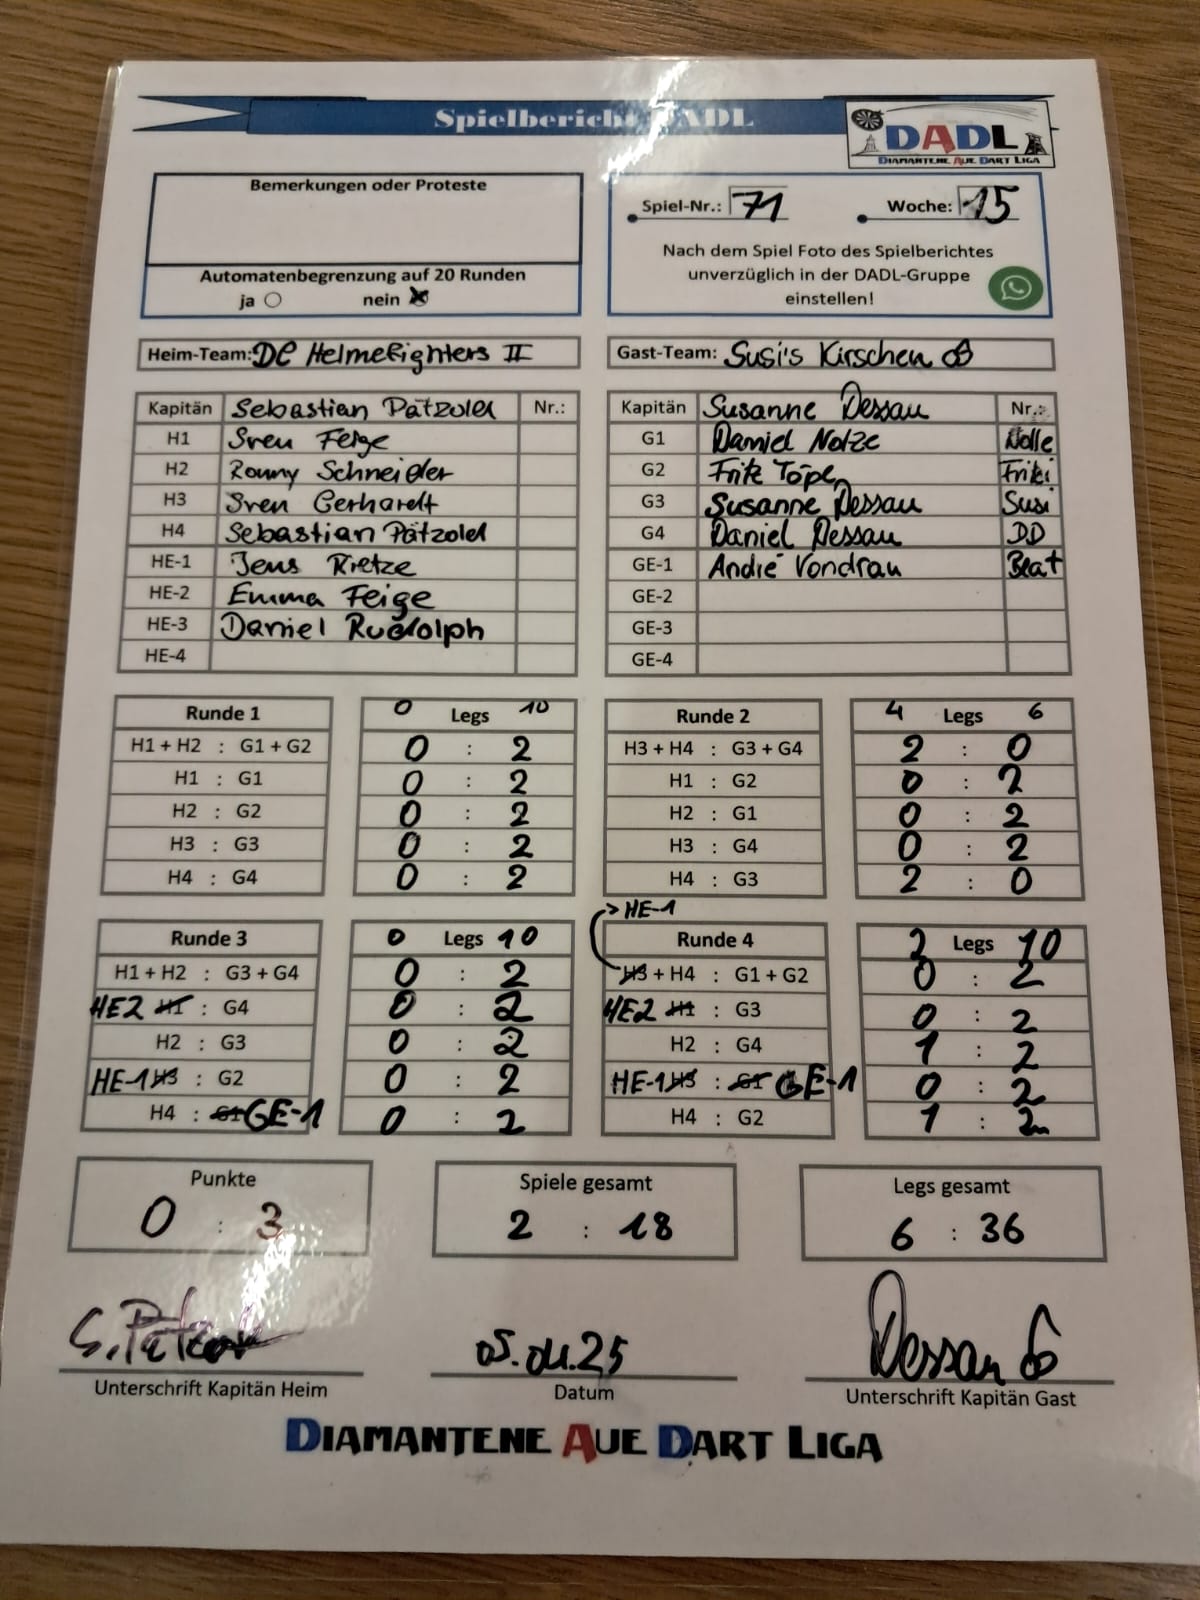 Spielbericht DADL
DADL
DIAMANTENE AUE DART LIGA
Bemerkungen oder Proteste
Automatenbegrenzung auf 20 Runden
ja nein
Spiel-Nr.: 71 Woche: 15
Nach dem Spiel Foto des Spielberichtes
unverzüglich in der DADL-Gruppe
einstellen!
Heim-Team: DC Helmefighters II
Gast-Team: Susi's Kirschen
Kapitän Sebastian Pätzold Nr.:
H1 Sven Feige
H2 Ronny Schneider
H3 Sven Gerhardt
H4 Sebastian Pätzold
HE-1 Jens Rietze
HE-2 Emma Feige
HE-3 Daniel Rudolph
HE-4
Kapitän Susanne Dessau Nr.:
G1 Daniel Nolze Nolle
G2 Fritz Töpe Friki
G3 Susanne Dessau Susi
G4 Daniel Dessau DD
GE-1 André Vondrau Beat
GE-2
GE-3
GE-4
Runde 1 0 Legs 10
H1 + H2 : G1 + G2 0 : 2
H1 : G1 0 : 2
H2 : G2 0 : 2
H3 : G3 0 : 2
H4 : G4 0 : 2
Runde 2 4 Legs 6
H3 + H4 : G3 + G4 2 : 0
H1 : G2 0 : 2
H2 : G1 0 : 2
H3 : G4 0 : 2
H4 : G3 2 : 0
Runde 3 0 Legs 10
H1 + H2 : G3 + G4 0 : 2
HE2 H1 : G4 0 : 2
H2 : G3 0 : 2
HE-1 H3 : G2 0 : 2
H4 : G1 GE-1 0 : 2
HE-1
Runde 4 2 Legs 10
H3 + H4 : G1 + G2 0 : 2
HE2 H1 : G3 0 : 2
H2 : G4 1 : 2
HE-1 H3 : G1 GE-1 0 : 2
H4 : G2 1 : 2
Punkte
0 : 3
Spiele gesamt
2 : 18
Legs gesamt
6 : 36
S. Pätzold
Unterschrift Kapitän Heim
05.04.25
Datum
Dessau
Unterschrift Kapitän Gast
DIAMANTENE AUE DART LIGA